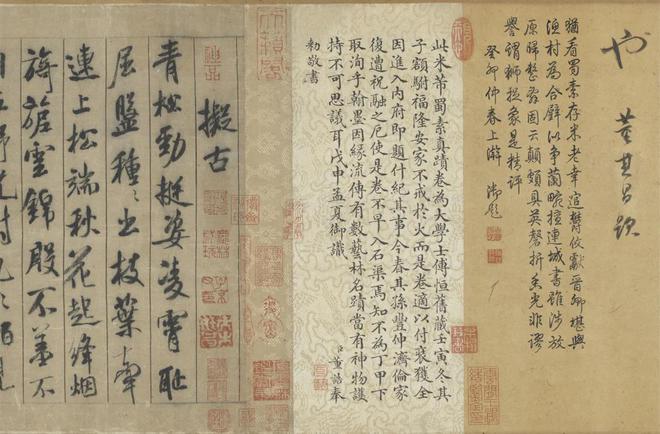 董其昌跋
猶看蜀素存米老幸逭鬱攸獻晉卿堪與
漁村為合璧以爭蘭畹擅連城書雖涉放
原歸整固云顛頗具英磬折香光非謬
譽謂獅捉象是精評
癸卯仲春上澣 御題
此米芾蜀素真蹟卷為大學士傅恒舊藏壬寅冬其
子額駙福隆安家不戒於火而是卷適以付裝獲全
因進入內府即題什紀其事今春其孫豐紳濟倫家
復遭祝融之厄使是卷不早入石渠焉知不為丁甲下
取洵乎翰墨因緣流傳有數藝林名蹟當有神物護
持不可思議耳戊申孟夏御識
臣董誥奉
勅敬書
擬古
青松勁挺姿凌霄恥
屈盤種種出枝葉牽
連上松端秋花起絳烟
旖旎雲錦殷不羞不